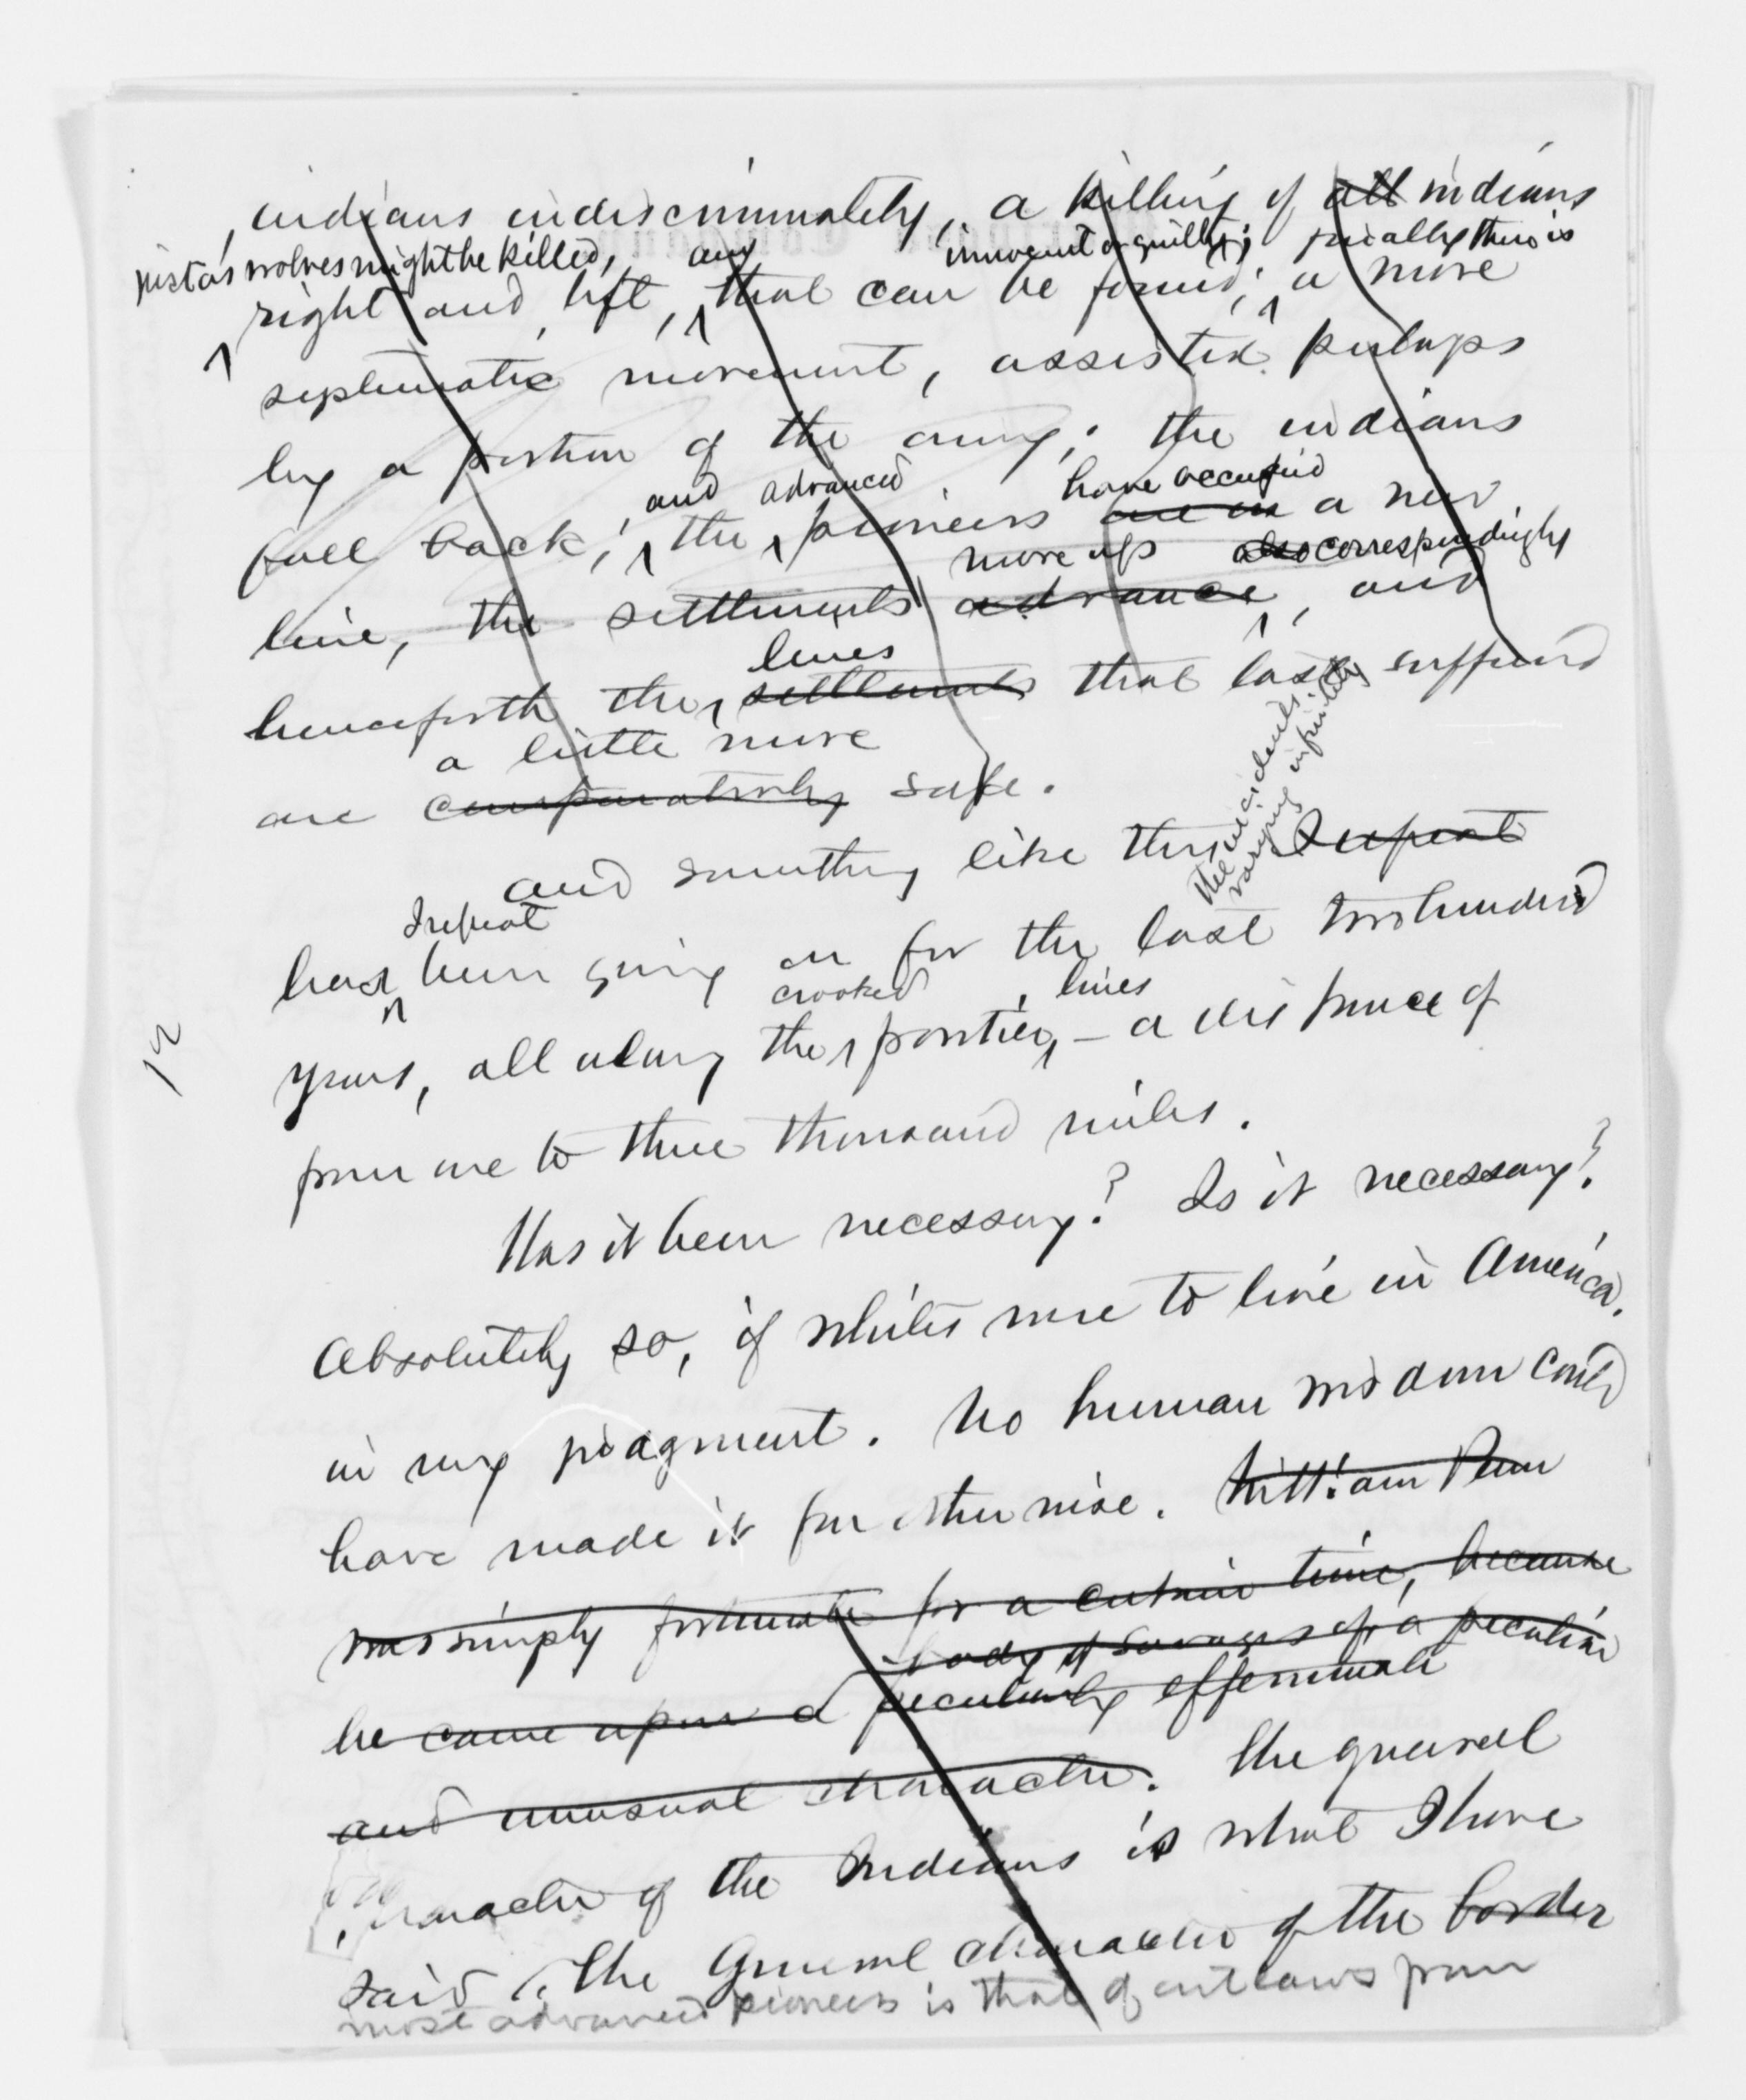 indians indiscriminately, a killing of all indians
just as wolves might be killed, any innocent or guilty; finally there is
right and left, that can be found; a more
systematic movement, assisted perhaps
by a portion of the army; the indians
and advanced have occupied
fall back; the pioneers are in a new
move up also correspondingly
line, the settlements advance, and
lines
henceforth the settlements that last suffered
a little more
are comparatively safe.
the incidents
varying infinitely
and something like this I repeat
I repeat
has been going on for the last two hundred
crooked lines
years, all along the frontier, — a distance of
from one to three thousand miles.
12
Has it been necessary? Is it necessary?
Absolutely so, if whites were to live in America,
in my judgment. No human wisdom could
have made it far otherwise. William Penn
was simply fortunate for a certain time, because
body of savages of a peculiar
he came upon a peculiarly effeminate
and unusual character. The general
character of the Indians is what I have
said. The general character of the border
most advanced pioneers is that of outlaws from